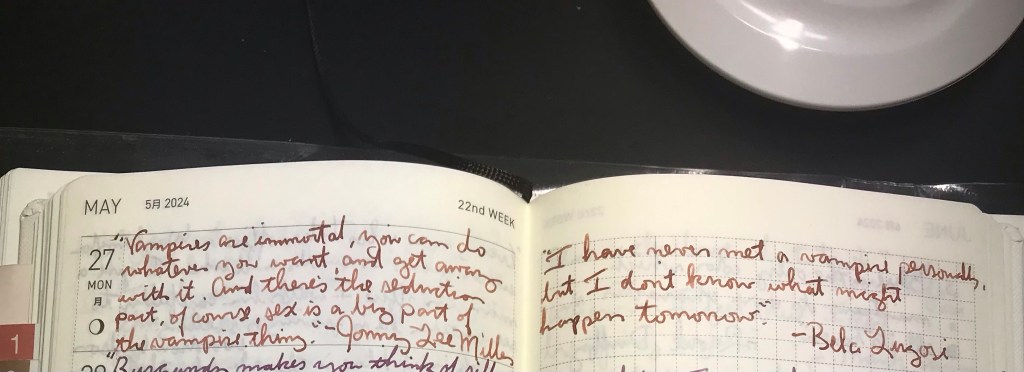 MAY 5月 2024
22nd WEEK
27
MON
月
"Vampires are immortal, you can do
whatever you want and get away
with it. And there's the seduction
part, of course, sex is a big part of
the vampire thing." -Jonny Lee Miller
1
28 "Burgundy makes you think of sill
"I have never met a vampire personally,
but I dont know what might
happen tomorrow."
-Bela Lugosi